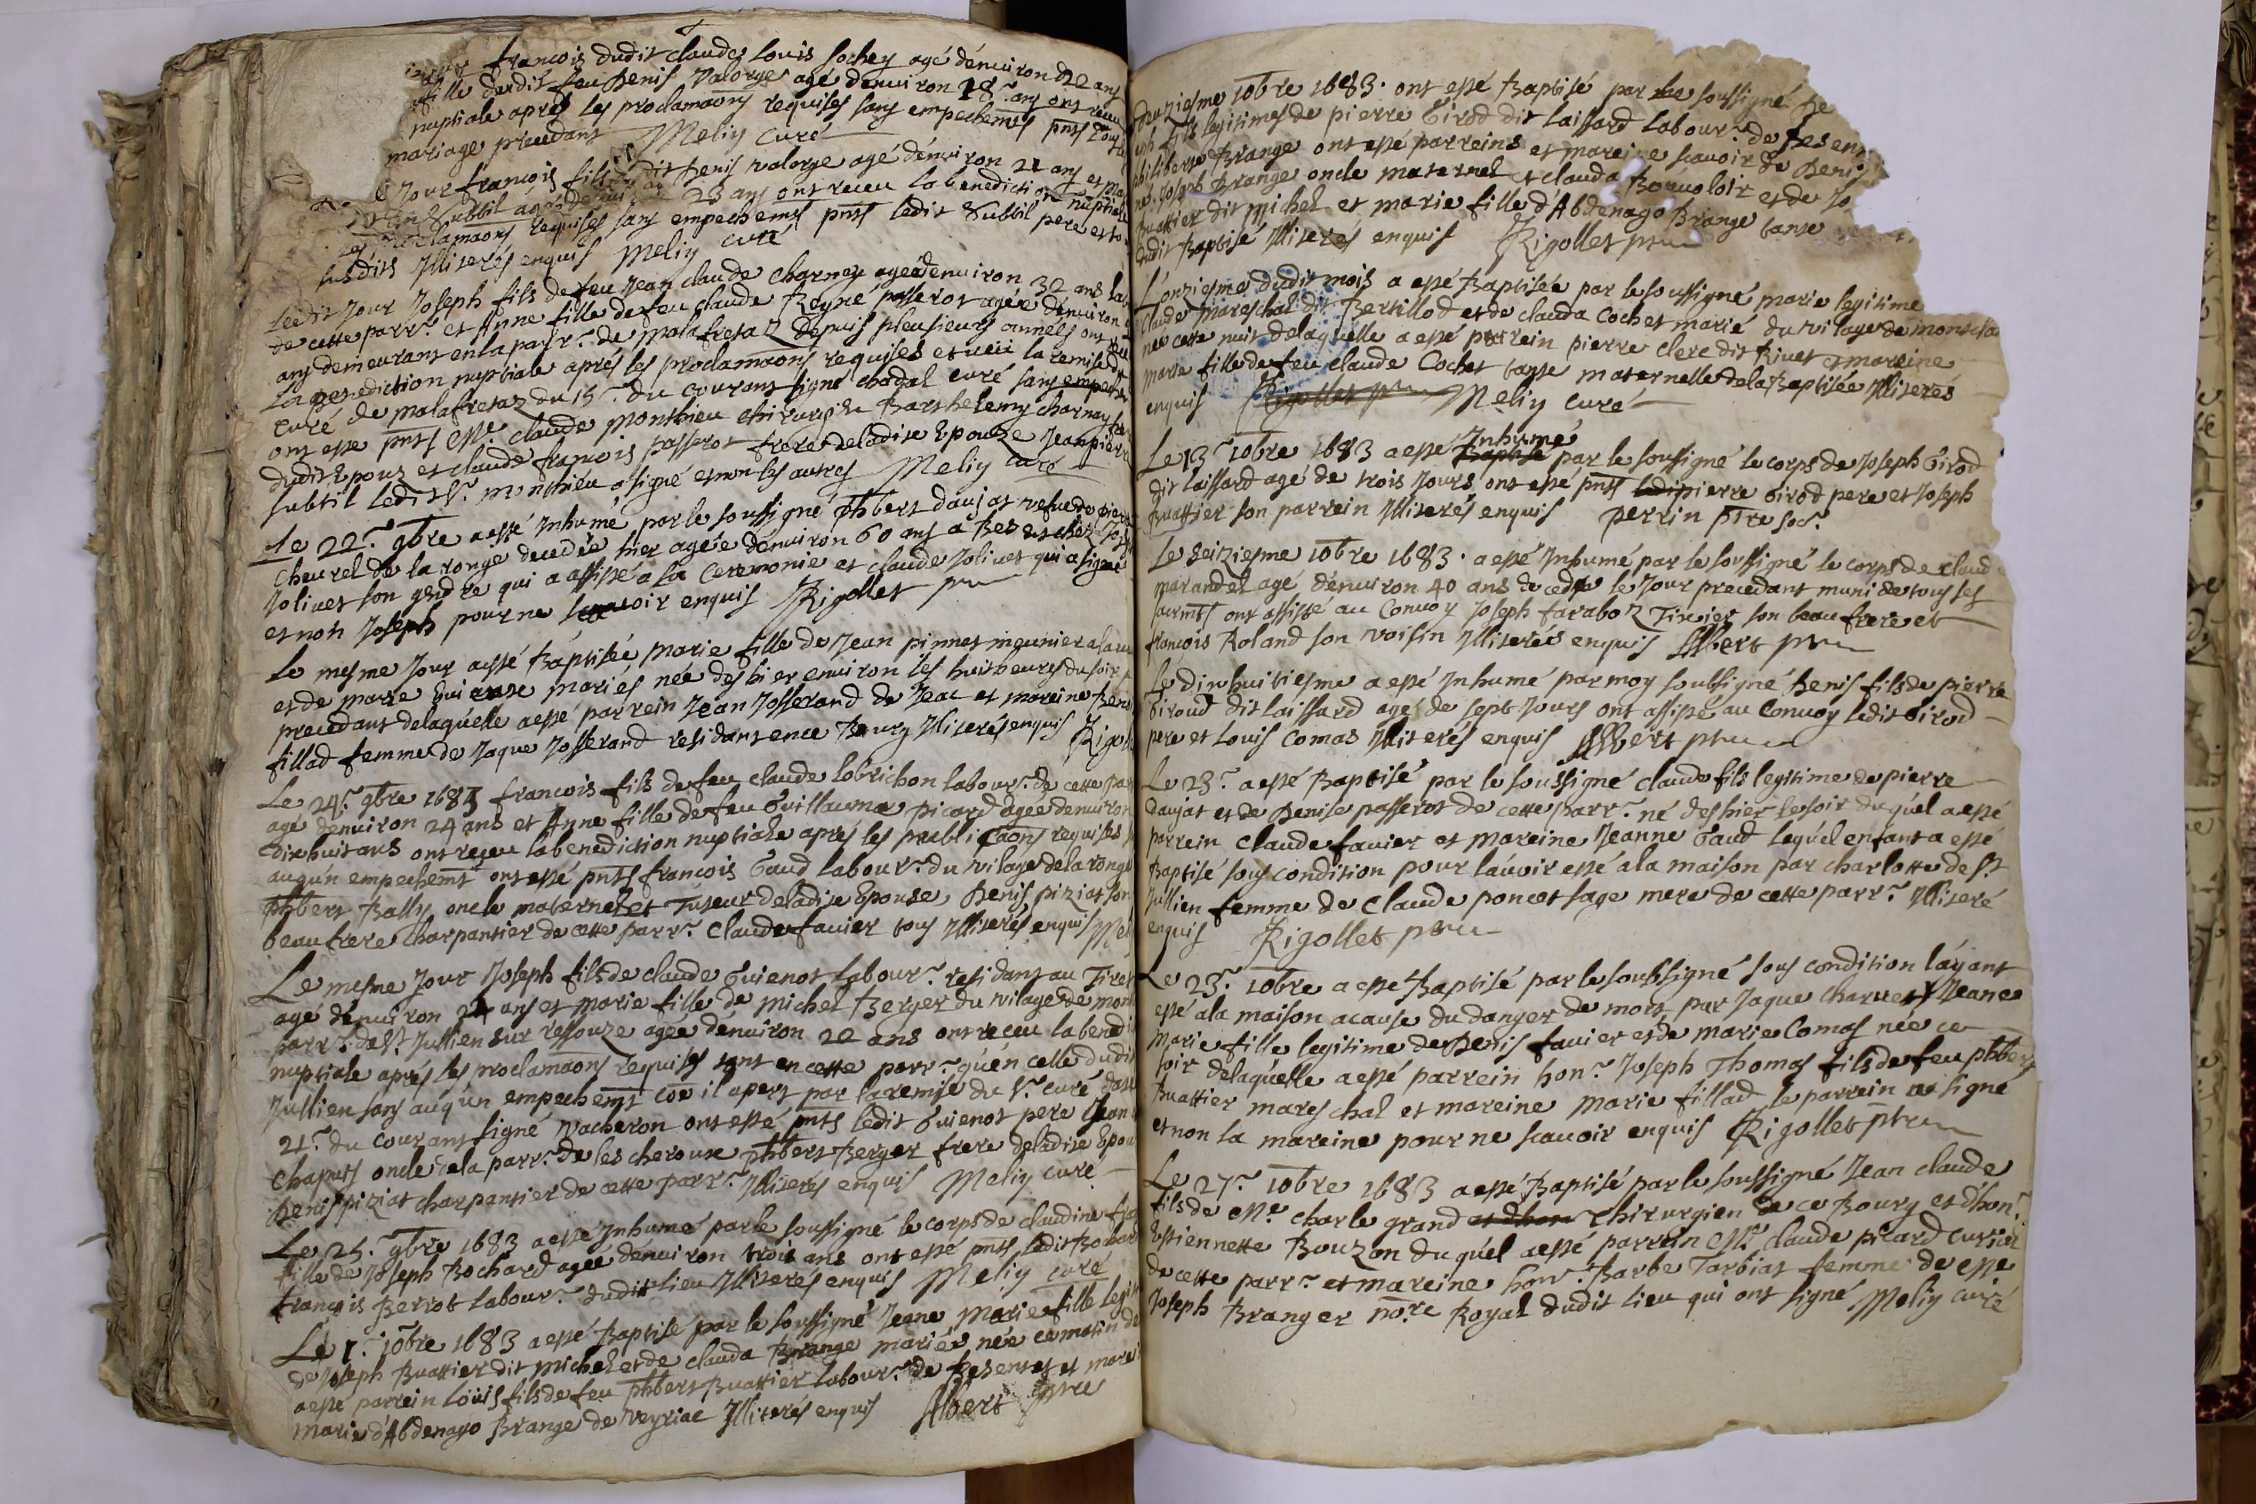 francois dudit claude Louis sochey agé dénuiron 22 ans
fille dudit feu Denis Valorge agé denuiron 18 ans ont receu
nuptiale apres les proclamaōns requises sans empechems pnts
mariage precedant Meliy Curé
Jour francois fils dit Denis valorge agé dénuiron 21 ans et
Subtil 23 ans ont receu la benediction nuptiale
proclamaōns requises sans empechems pnts ledit Subtil pere et
susdits Jlliterés enquis Meliy curé
Ledit Jour Joseph fils de feu Jean claude charney ageé denuiron 32 ans
de cette parr.e et Anne fille de feu claude Reyné passerot ageé dénuiron
ans demeurant en la parr.e de malafretaz depuis pleusieurs années ont
La Benediction nuptiale aprés les proclamaōns requises et veu la remise du
Curé de malafretaz du 15.e du courant signé chagal curé sans empechems
ont esté pnts Me. claude monthieu chirurgien Barthelemy charnay
dudit Epoux et claude francois passerot frere de ladite Epouze Jean pierre
subtil Ledit Sr. monthieu a signé et non les autres Meliy curé
Le 22.e 9bre a esté Jnhumé par le soussigné phbert daujat vefue de pierre
cheurel de la ronge decedée hier ageé denuiron 60 ans a Besentet chez
Joliuet son gendre qui a assisté a la Ceremonie et claude Joliuet qui a signé
et non Joseph pour ne scauoir enquis Rigollet ptre
Le mesme Jour a esté Baptisée Marie fille de Jean pinnet meunier a la
et de marie mariés née des hier enuiron les huit heures du soir
precedant delaquelle a esté parrein Jean Josserand de Jeac et mareine
fillad femme de Jaque Josserand residants en ce Bourg Jlliterés enquis Rigollet
Le 24.e 9bre 1683 francois fils de feu claude Lobrichon labour.r de cette parr
agé denuiron 24 ans et Anne fille de feu Guillaume picard agée denuiron
dixhuit ans ont receu la benediction nuptiale aprés les publicaōns requises
auqu'n empechemt ont esté pnts francois Gaud Labour.r du vilage de la ronge
phbert Bally oncle maternel et Tuteur de ladite Epouse Denis piziat son
beau frere charpantier de cette parr.e Claude fauier tous Jlliterés enquis Meliy
Le mesme Jour Joseph fils de claude Guienot Labour.r residant au Tiret
agé dénuiron 24 ans et marie fille de michel Berger du vilage de mon
parr.e de St Jullien sur ressouze agée dénuiron 22 ans ont receu la bened
nuptiale aprés les proclamaōns requises tant en cette parr.e qu'en celle dudit
Jullien sans auqu'un empechemt coe il apert par la remise du Sr. curé
21.e du courant signé vacheron ont esté pnts ledit Guienot pere Jean
chaput oncle de la parr.e de lescheroux phbert Berger frere de ladite Epouse
Denis piziat charpantier de cette parr.e Jlliterés enquis Meliy curé
Le 25.e 9bre 1683 a esté Jnhumé par le soussigné le corps de claudine
fille de Joseph Bochard ageé dénuiron trois ans ont esté pnts ledit Bochard
francois Perrot labour.r dudit lieu Jlliterés enquis Meliy curé
Le 1.er 10bre 1683 a esté Baptisé par le soussigné Jeane Marie fille legit
de Joseph Buattier dit michel et de clauda Brange mariés née ce matin de
a esté parrein Loüis fils de feu phbert Buattier labour.r de Besentet et mareine
marie d'Abdenago Brange de Veyriac Jlliterés enquis Albert ptre
10bre 1683 ont esté Baptisé par le soussigné
fils legitimes de pierre Girod dit Laissard Labour.r de
philiberte Brange ont esté parreins et mareine scauoir de Denis
Joseph Brange oncle maternel et clauda et de Jo
Buattier dit Michel et marie fille d'Abdenago Brange tante
dudit Baptisé Jlliterés enquis Rigollet ptre
L'onziesme dudit mois a esté Baptisée par le soussigné marie legitime
Claude mareschal dit Bertillod et de clauda Cochet mariés du vilage de
neé cette nuit delaquelle a esté parrein pierre clerc dit Riuet et mareine
Marie fille de feu claude Cochet tante maternelle de la Baptisée Jlliterés
enquis Rigollet ptre Meliy curé
Le 13.e 10bre 1683 a esté Baptisé Jnhumé par le soussigné le corps de Joseph Girod
dit laissard agé de trois Jours ont esté pnts ledit pierre Girod pere et Joseph
Buattier son parrein Jlliterés enquis perrin ptre soc.
Le Seiziesme 10bre 1683. a esté Jnhumé par le soussigné le corps de claude
marandet agé dénuiron 40 ans decedé le Jour precedant muni de tous ses
sacrmts ont assisté au Convoy Joseph faraboz Tixier son beau frere et
francois Roland son voisin Jlliterés enquis Albert ptre
Le dixhuitiesme a esté Jnhumé par moy soussigné Denis fils de pierre
Giroud dit laissard agé de sept Jours ont assisté au Convoy ledit Girod
pere et Louis Comas Jlliterés enquis Albert ptre
Le 23.e a esté Baptisé par le soussigné claude fils legitime de pierre
daujat et de Denise passerot de cette parr.e né des hier le soir duquel a esté
parrein claude fauier et mareine Jeanne Gaud lequel enfant a esté
Baptisé sous condition pour l'auoir esté a la maison par charlotte de St
Jullien femme de claude poncet sage mere de cette parr.e Jlliteré
enquis Rigollet ptre
Le 23.e 10bre a esté Baptisé par le soussigné sous condition l'ayant
esté a la maison a cause du danger de mort par Jaque charuet Jeane
Marie fille legitime de Denis fauier et de marie Comas née ce
soir delaquelle a esté parrein hon.e Joseph Thomas fils de feu phbert
Buattier mareschal et mareine marie fillad le parrein a signé
et non la mareine pour ne scauoir enquis Rigollet ptre
Le 27.e 10bre 1683 a esté Baptisé par le soussigné Jean claude
fils de Me. charle grand et d'hon chirurgien de ce Bourg et d'hon.e
Estiennette Bouzon duquel a esté parrein Me. claude picard curial
de cette parr.e et mareine hon.e Barbe Tarbiat femme de Me
Joseph Branger no.re Royal dudit lieu qui ont signé Meliy curé